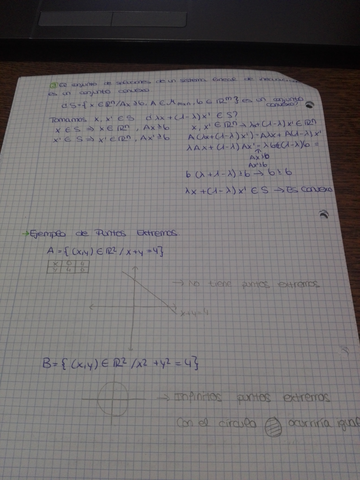 El conjunto de soluciones de un sistema lineal de inecuaciones
es un conjunto convexo
¿S={x ∈ ℝⁿ/Ax≥b, A∈M mxn, b∈ℝᵐ} es un conjunto
convexo?
Tomamos x, x' ∈ S ¿λx+(1-λ)x' ∈ S?
x ∈ S ⇒ x ∈ ℝⁿ, Ax≥b
x' ∈ S ⇒ x' ∈ ℝⁿ, Ax'≥b
x, x' ∈ ℝⁿ ⇒ λx+(1-λ)x' ∈ ℝⁿ
A(λx+(1-λ)x')=Aλx+A(1-λ)x'
λAx+(1-λ)Ax' ≥ λb+(1-λ)b =
Ax≥b
Ax'≥b
b(λ+1-λ)≥b → b≥b
λx+(1-λ)x' ∈ S → Es convexo
→ Ejemplo de Puntos Extremos
A={(x,y) ∈ ℝ²/x+y=4}
→ No tiene puntos extremos
x+y=4
B={(x,y) ∈ ℝ²/x²+y²=4}
→ Infinitos puntos extremos
Con el círculo ocurriría igual